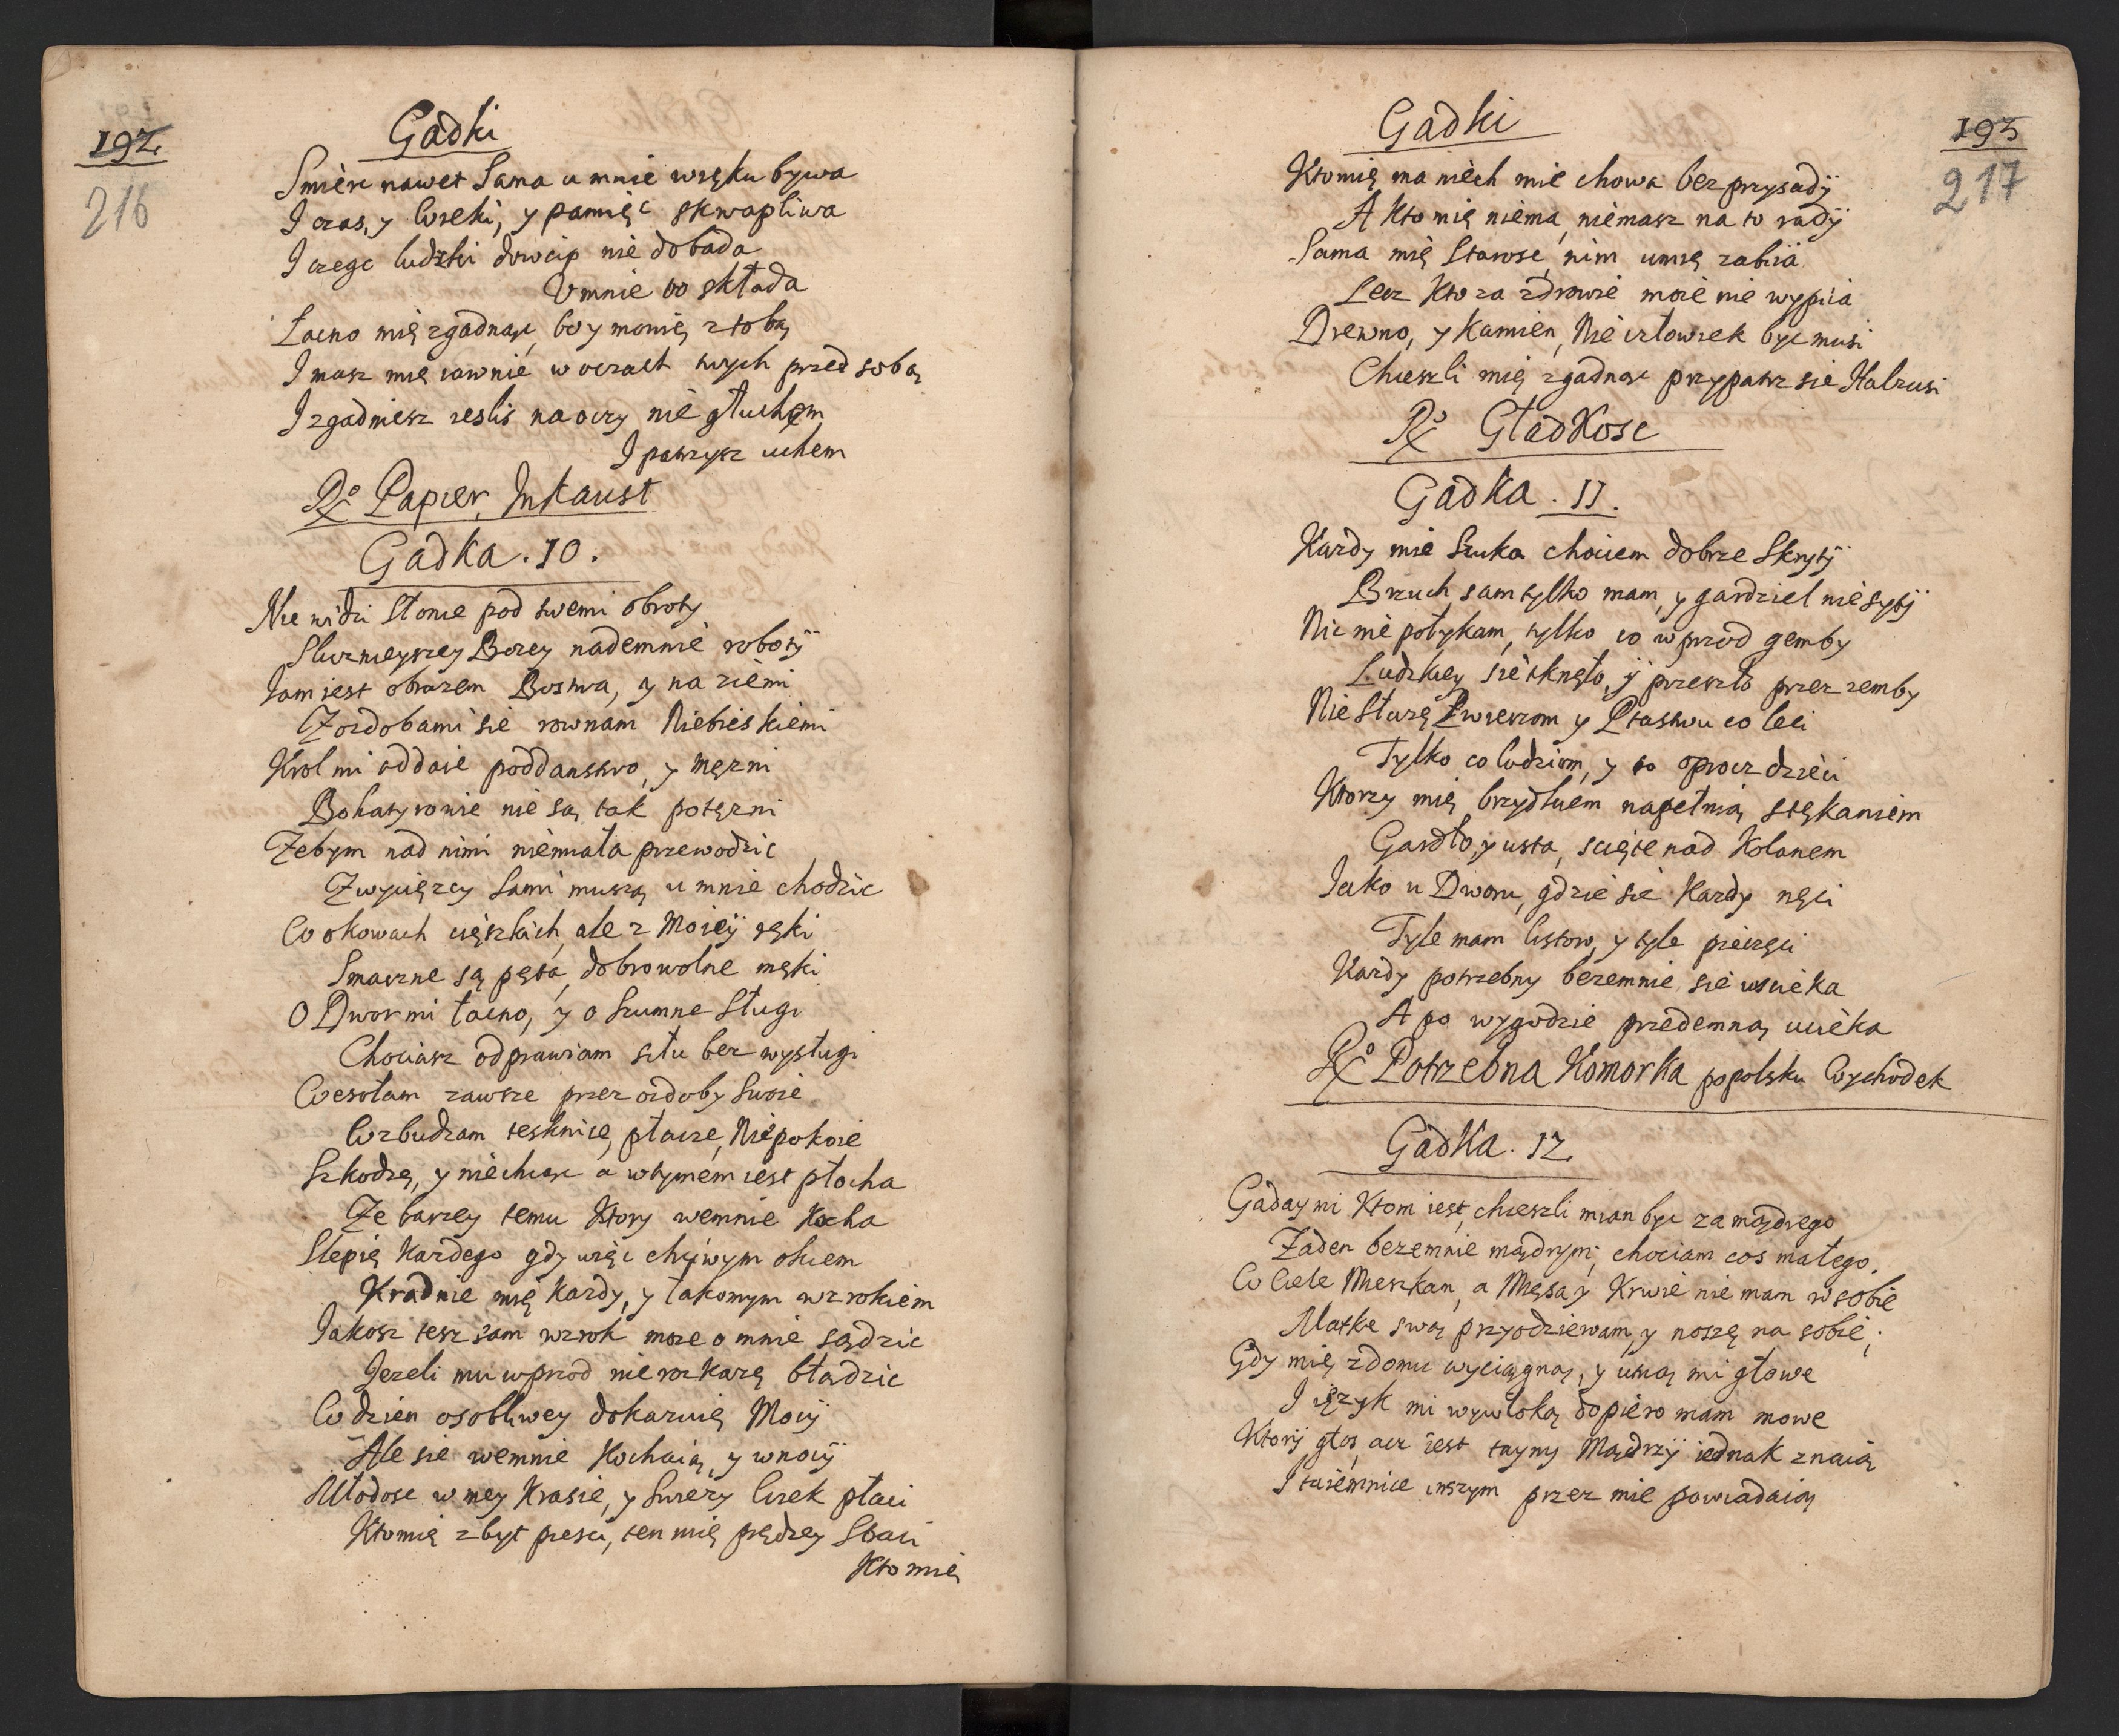 192.
216
Gadki
Smierc nawet Sama u mnie wręku bywa
I czas, y Wieki, y pamięc skwapliwa
I czego ludzki dowcip nie dobada
Vmnie to składa
Łacno mię zgadnąc, bo y mowię z tobą
I masz mię iawnie w oczach twych przed sobą
I zgadniesz ieslis na oczy nie głuchem
I patrzysz uchem
Rx Papier, Inkaust
Gadka . 10 .
Nie widzi Słonce pod swemi obroty
Slicznieyszey Bozey nademnie roboty
Jam iest obrazem Bostwa, y na ziemi
Z ozdobami sie rownam Niebieskiemi
Krol mi oddaie poddanstwo, y męzni
Bohatyrowie nie są tak potęzni
Zebym nad nimi niemiała przewodzic
Zwycięzcy Sami muszą u mnie chodzic
W okowach cięszkich, ale z Moiey ręki
Smaczne są pęta, dobrowolne męki
O Dwor mi łacno, y o Szumne Sługi
Chociasz odprawiam siłu bez wysługi
Wesołam zawsze przez ozdoby Swoie
Wzbudzam tesknice, płacze, Niepokoie
Szkodzę, y niechcąc a wtymem iest płocha
Ze barzey temu Ktory wemnie Kocha
Slepię Kazdego gdy więc chciwym okiem
Kradnie mię Kazdy, y łakomym wzrokiem
Jakosz tesz sam wzrok moze o mnie sądzic
Jezeli mu wprzod nie rozkazę błądzic
W dzien osobliwey dokazuię Mocy
Ale sie wemnie Kochaią, y wnocy
Młodosc w mey Krasie, y Swiezy Wiek płaci
Ktomię zbyt piesci, ten mię prędzey Straci
Kto mię
Gadki
193
217
Ktomię ma niech mie chowa bez przysady
A Kto mię niema, niemasz na to rady
Sama mię Starosc, nim umię zabiia
Lecz Kto za zdrowie moie nie wypiia
Drewno, y Kamien, Nie człowiek byc musi
Chceszli mię zgadnąc przypatrz sie Halzusi
Rx Gładkosc
Gadka . 11.
Kazdy mie Szuka chociem dobrze Skryty
Brzuch sam tylko mam, y gardziel niesyty
Nic nie połykam, tylko co wprzod gemby
Ludzkiey sie tknęło, y przeszło przez zemby
Nie Słuzę Zwierzom y Ptastwu co leci
Tylko co ludziom, y to oprocz dzieci
Ktorzy mię brzydkiem napełnią stękaniem
Gardło, y usta, scięte nad Kolanem
Jako u Dworu, gdzie sie Kazdy nęci
Tyle mam listow, y tyle pieczęci
Kazdy potrzebny bezemnie sie wscieka
A po wygodzie przedemną ucieka
Rx Potrzebna Komorka popolsku Wychodek
Gadka. 12.
Gaday mi Ktom iest, chceszli mian byc za mądrego
Zaden bezemnie mądrym; chociam cos małego.
W Ciele Mieszkam, a Mięsa y Krwie nie mam w sobie
Matke swą przyodziewam, y noszę na sobie;
Gdy mię zdomu wyciągną, y utną mi głowe
I ięzyk mi wywloką dopiero mam mowe
Ktory głos, acz iest tayny Mądrzy iednak znaią
I taiemnice inszym przez mie powiadaią